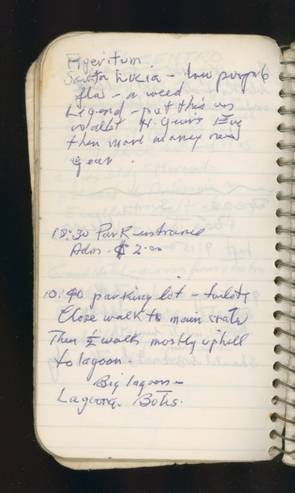 Ageritum
Santa Lucia - low purple
flw - a weed
Legend - put this in
wallet N. Years Eve
then more money new
year.
10:30 Park entrance
Adm. $ 2.00
10:40 parking lot - toilets
Close walk to main crater
Then walk mostly uphill
to lagoon
Big lagoon -
Lagoona Botos.